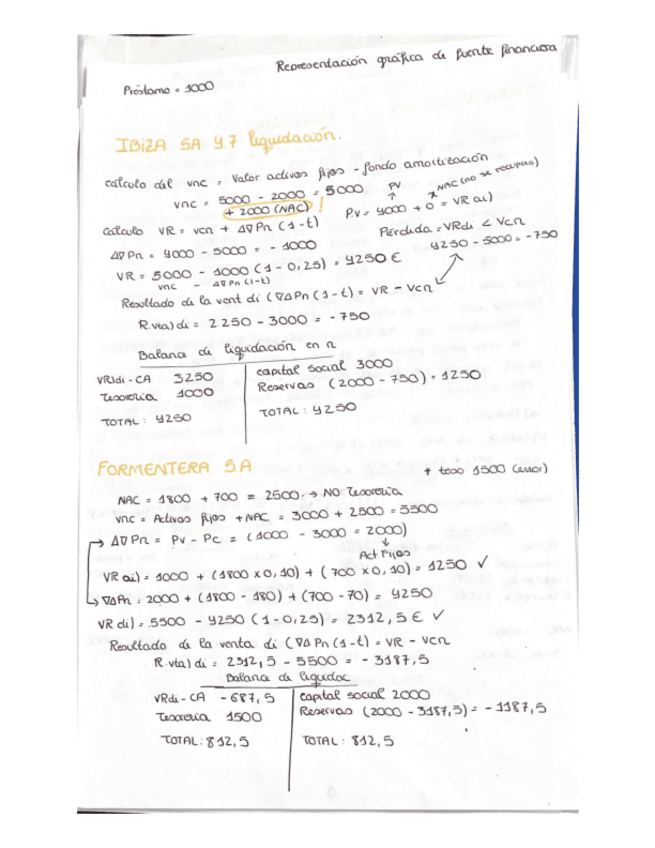 Representación gráfica de fuente financiera
Préstamo = 1000
IBIZA SA y.7 liquidación.
Calculo del vnc = Valor activos fijos - fondo amortización
vnc = 5000 - 2000 = 5000
+ 2000 (NAC) !
PV NAC (no se recupera)
P.v = 4000 + 0 = VR ai)
Calculo VR = vcn + Δ∇ Pn (1-t)
Pérdida = VRdi < Vcn
4250 - 5000 = -750
Δ∇ Pn = 4000 - 5000 = - 1000
VR = 5000 - 1000 (1-0,25) = 4250 €
vnc - Δ∇ Pn (1-t)
Resultado de la vent di (∇Δ Pn (1-t) = VR - Vcn
R.vta) di = 2250 - 3000 = - 750
Balance de liquidación en n
VR)di - CA 3250
Tesorería 1000
TOTAL: 4250
capital social 3000
Reservas (2000 - 750) = 1250
TOTAL: 4250
FORMENTERA S.A
+ teso 1500 (error)
NAC = 1800 + 700 = 2500 → NO Tesorería
vnc = Activos fijos + NAC = 3000 + 2500 = 5500
Δ∇ Pn = Pv - Pc = (1000 - 3000 = 2000)
Act Fijos
VR ai) = 1000 + (1800 x 0,10) + (700 x 0,10) = 1250 ✓
∇Δ Pn = 2000 + (1800 - 180) + (700 - 70) = 4250
VR di) = 5500 - 4250 (1-0,25) = 2312,5 € ✓
Resultado de la venta di (∇Δ Pn (1-t) = VR - Vcn
R.vta) di = 2312,5 - 5500 = - 3187,5
Balance de liquidac
VRdi - CA - 687,5
Tesorería 1500
TOTAL: 812,5
capital social 2000
Reservas (2000 - 3187,5) = - 1187,5
TOTAL: 812,5